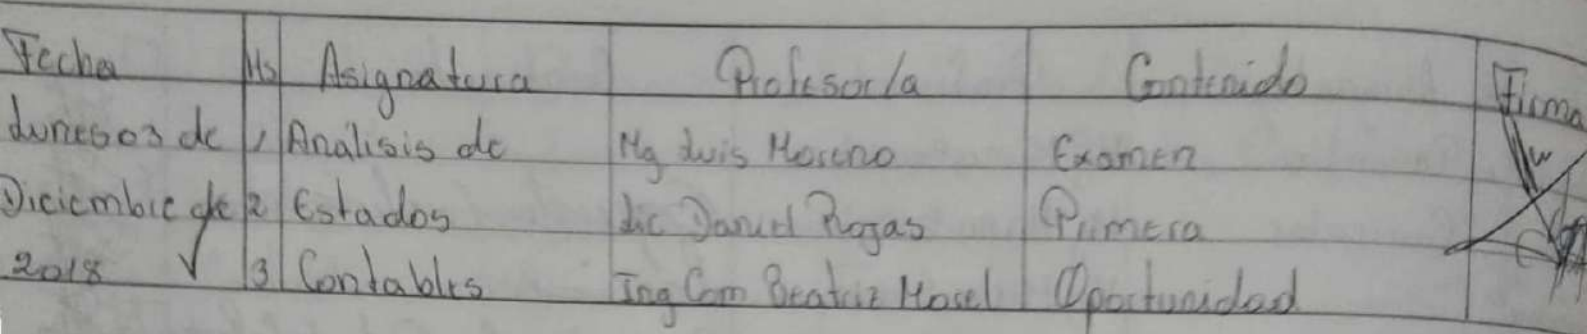 Fecha Hs Asignatura Profesor/a Contenido Firma
Lunes 03 de 1 Analisis de Mg Luis Moreno Examen
Diciembre de 2 Estados Lic Daniel Rojas Primera
2018 3 Contables Ing Com Beatriz Oportunidad